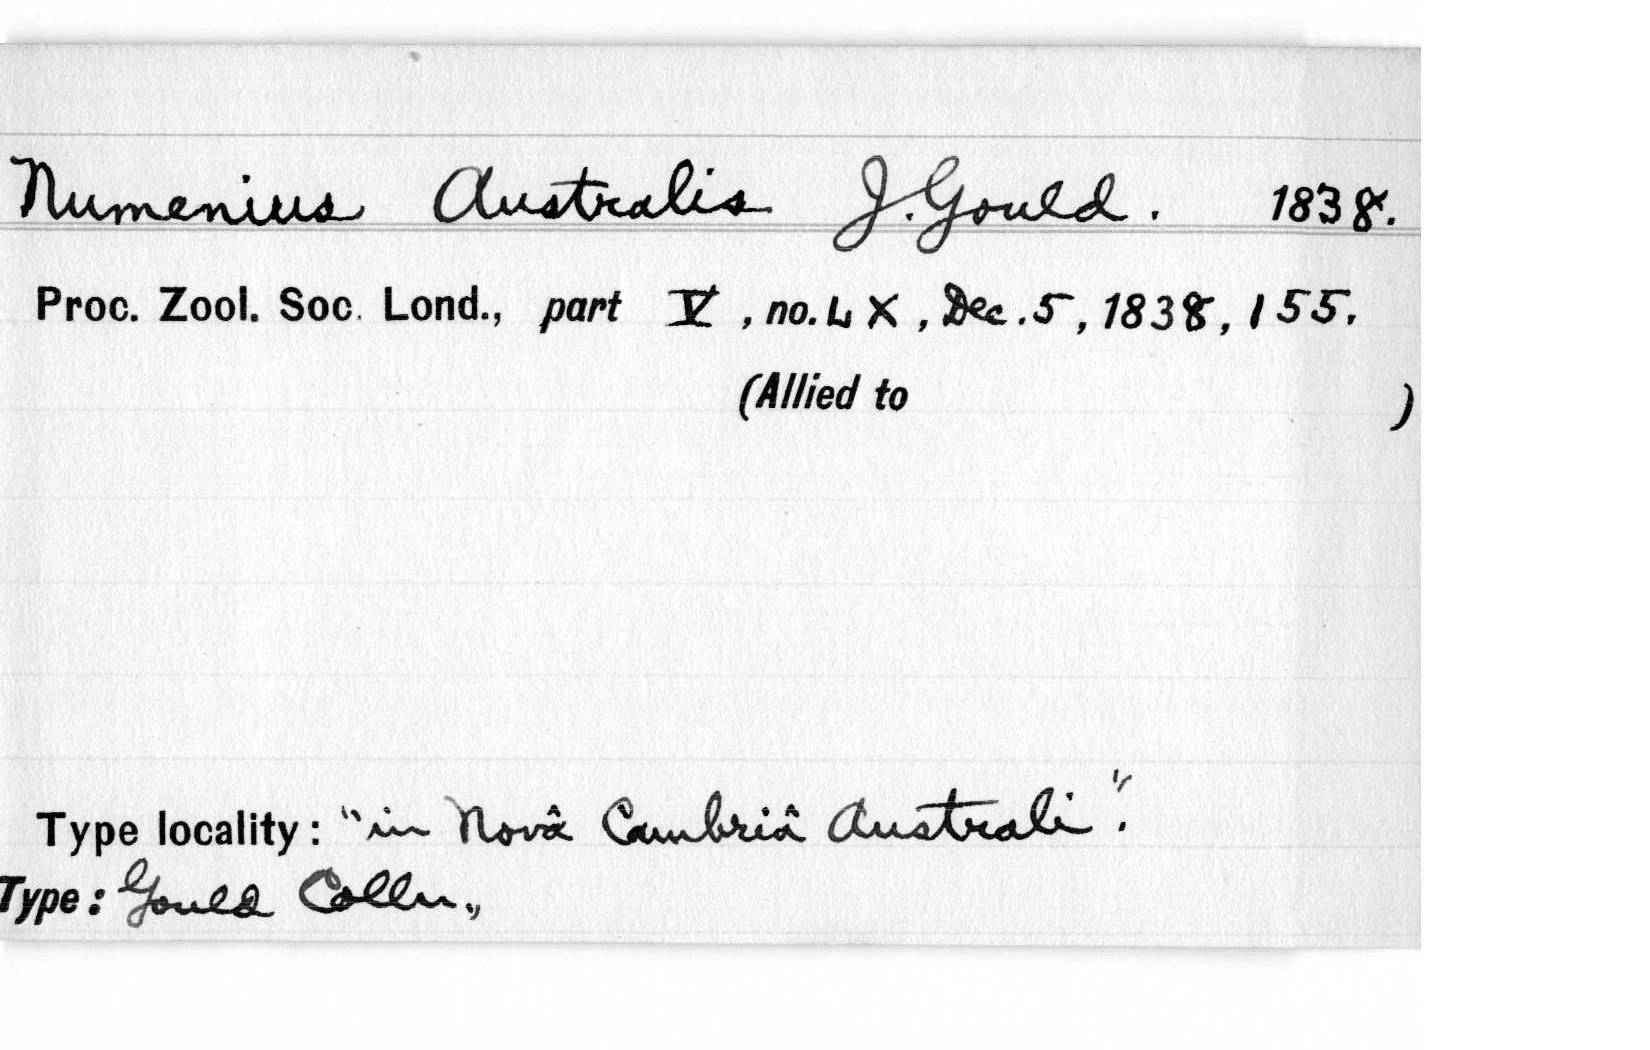 Numenius Australis J. Gould. 1838.
Proc. Zool. Soc. Lond., part V, no. LX, Dec. 5, 1838, 155.
(Allied to )
Type locality: "in Novâ Cambriâ Australi".
Type: Gould Colln.,